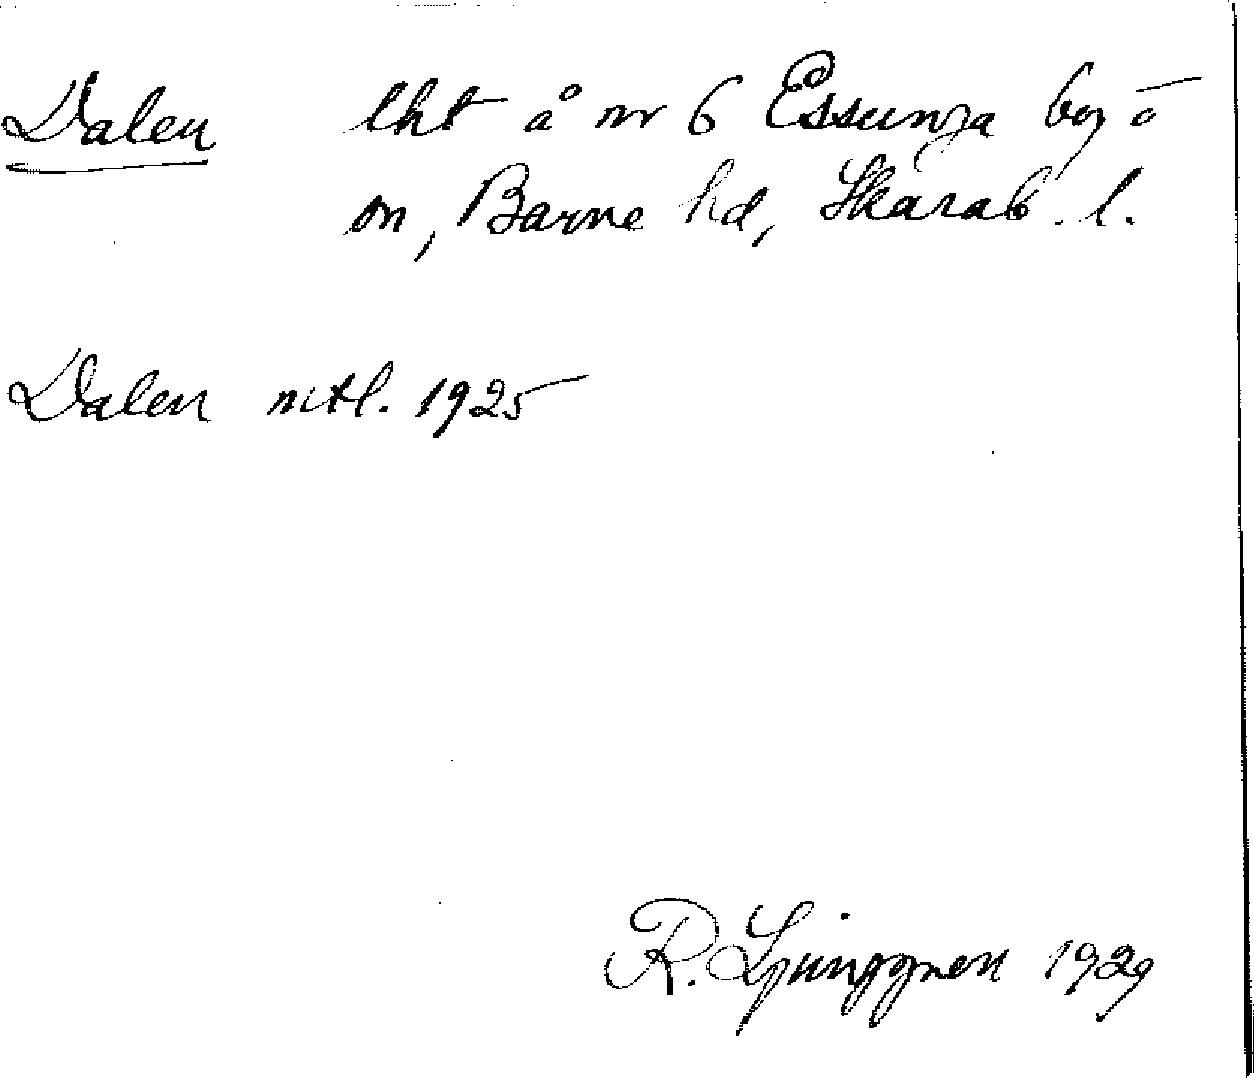 Dalen lht å nr 6 Essunga by o
sn, Barne hd, Skarab. l.
Dalen mtl. 1925
R. Ljunggren 1929